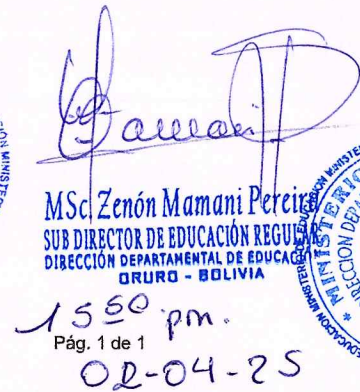 Mamani P
MSc. Zenón Mamani Pereira
SUB DIRECTOR DE EDUCACIÓN REGULAR
DIRECCIÓN DEPARTAMENTAL DE EDUCACIÓN
ORURO - BOLIVIA
15 50 pm.
Pág. 1 de 1
02-04-25